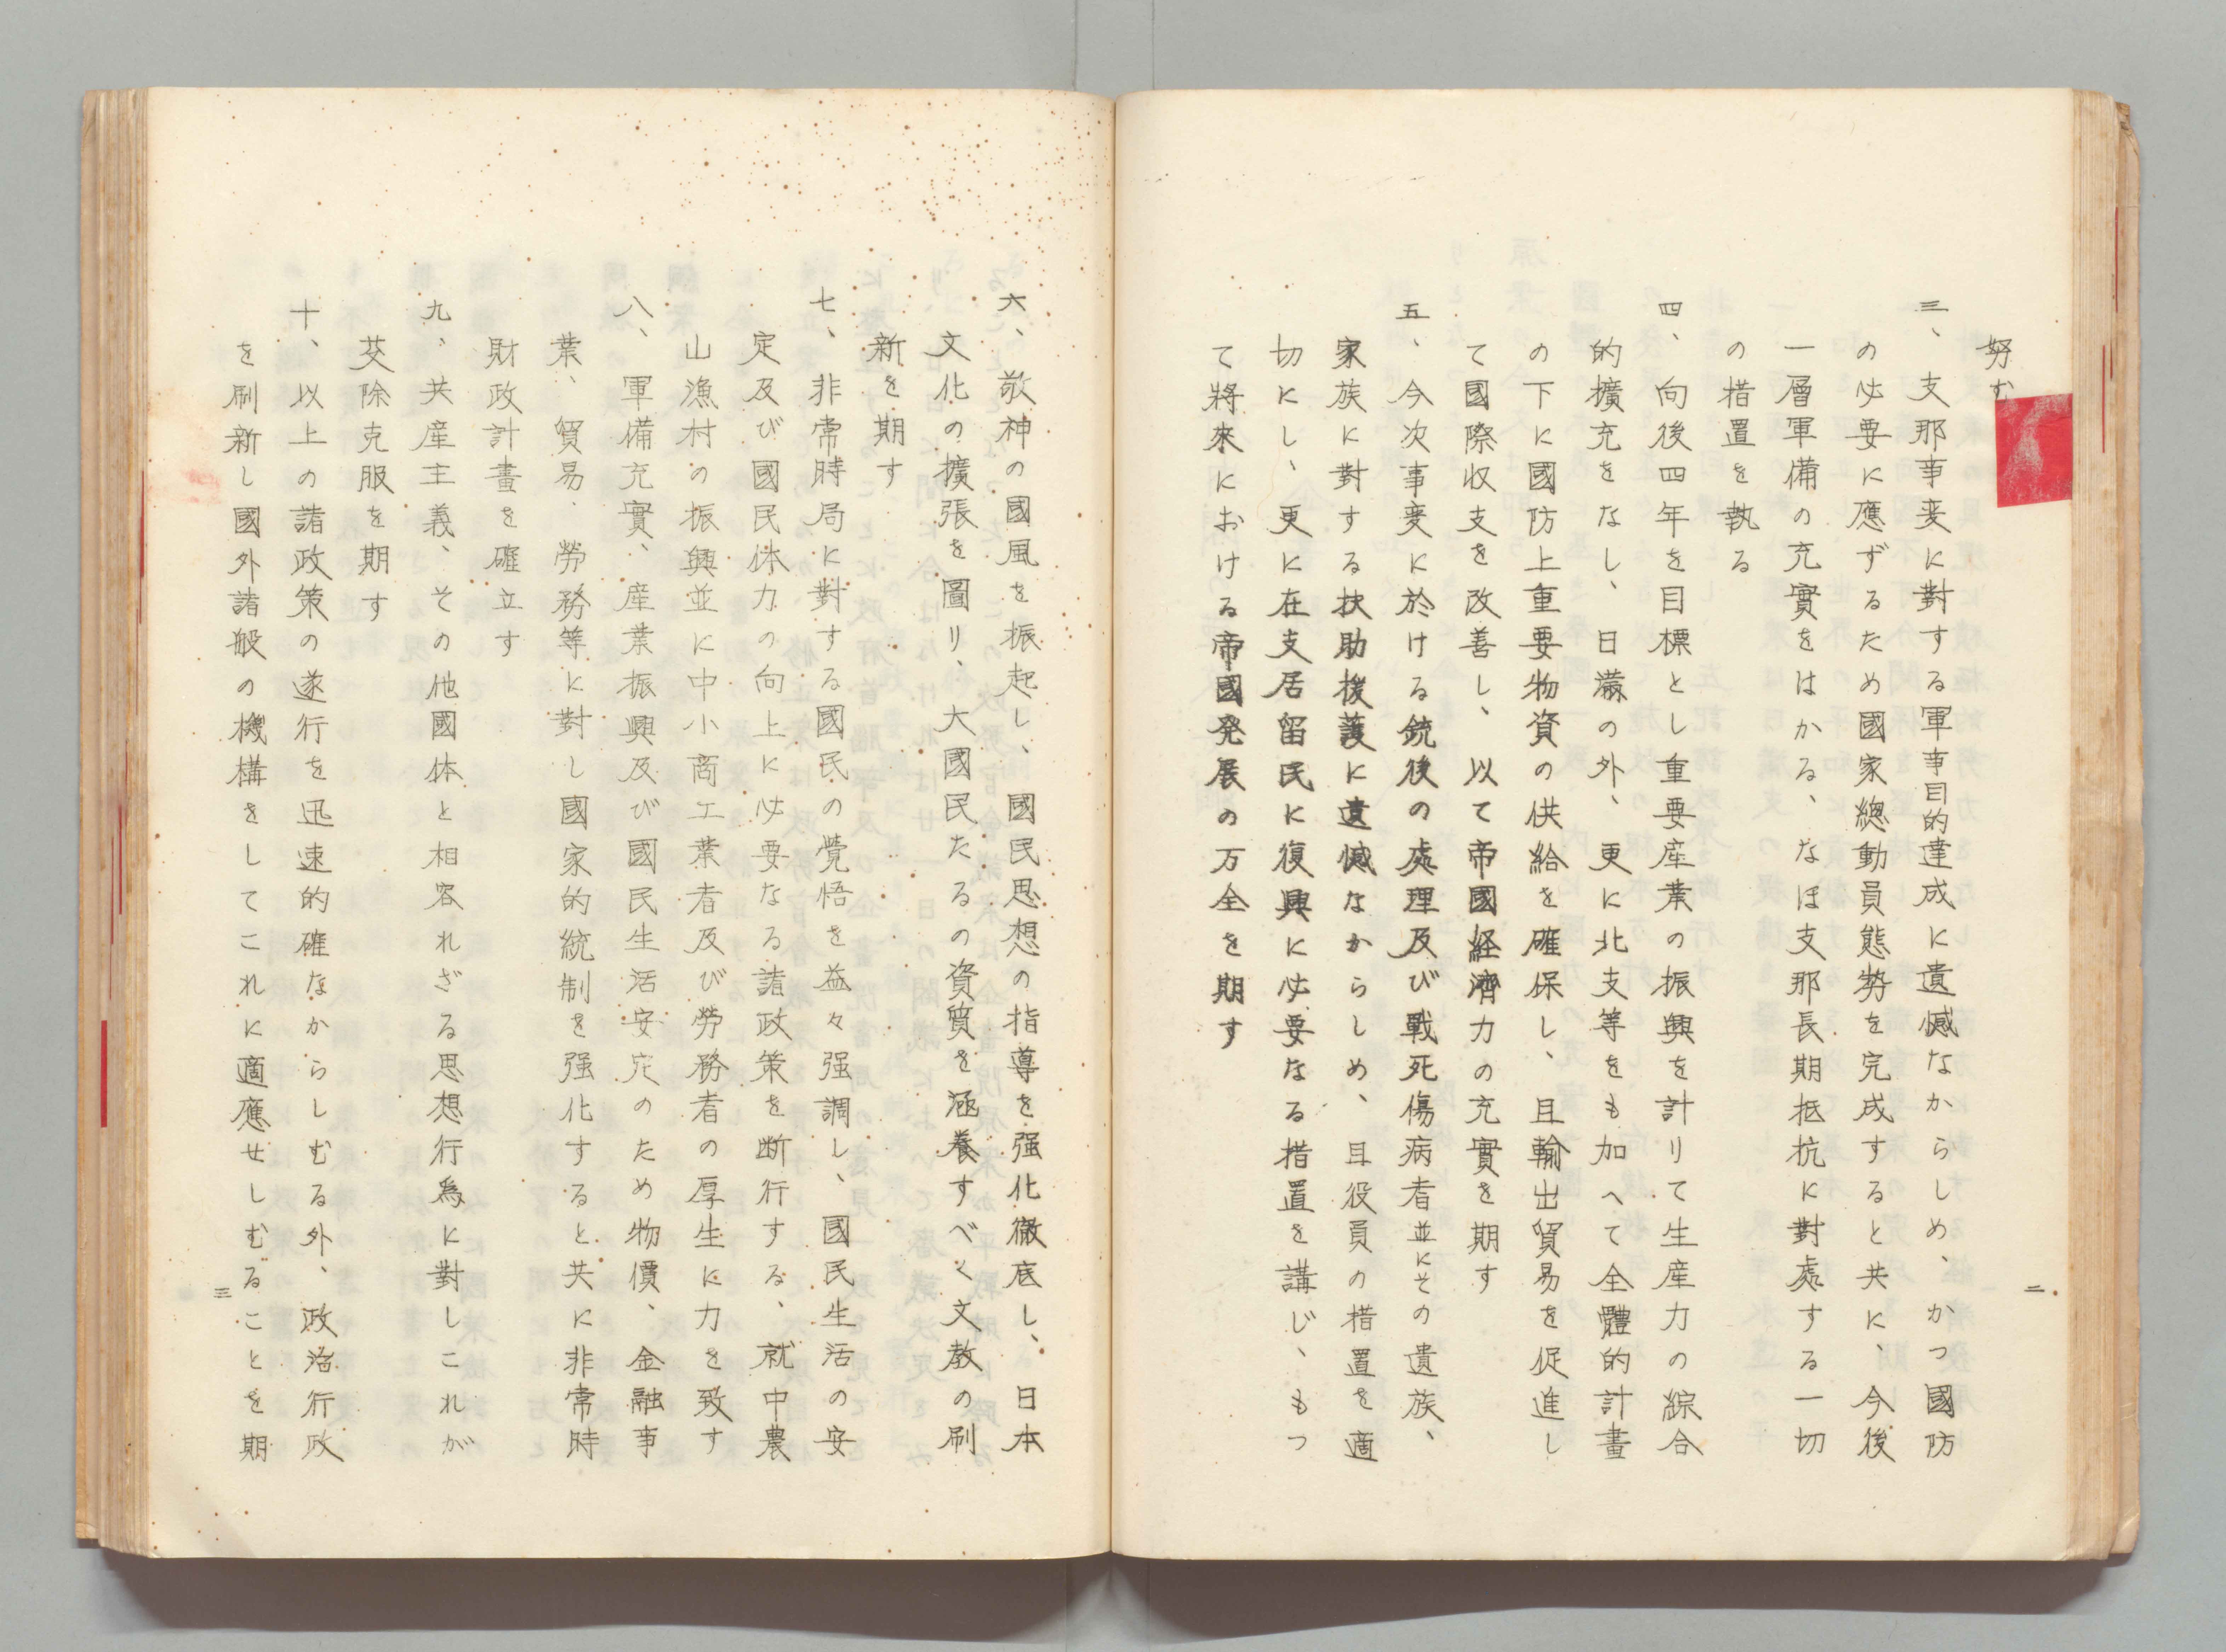 二
努む
三、支那事変に對する軍事目的達成に遺憾なからしめ、かつ國防
の必要に應ずるため國家總動員態勢を完成すると共に、今後
一層軍備の充實をはかる、なほ支那長期抵抗に對處する一切
の措置を執る
四、向後四年を目標とし重要産業の振興を計りて生産力の綜合
的擴充をなし、日滿の外、更に北支等をも加へて全體的計畫
の下に國防上重要物資の供給を確保し、且輸出貿易を促進し
て國際収支を改善し、以て帝國経濟力の充實を期す
五、今次事変に於ける銃後の處理及び戰死傷病者並にその遺族、
家族に對する扶助後護に遺憾なからしめ、且役員の措置を適
切にし、更に在支居留民に復興に必要なる措置を講じ、もつ
て將來における帝國発展の万全を期す
六、敬神の國風を振起し、國民思想の指導を强化徹底し、日本
文化の擴張を圖り、大國民たるの資質を涵養すべく文教の刷
新を期す
七、非常時局に對する國民の覺悟を益々强調し、國民生活の安
定及び國民体力の向上に必要なる諸政策を断行する、就中農
山漁村の振興並に中小商工業者及び勞務者の厚生に力を致す
八、軍備充實、産業振興及び國民生活安定のため物價、金融事
業、貿易、勞務等に對し國家的統制を强化すると共に非常時
財政計畫を確立す
九、共産主義、その他國体と相容れざる思想行為に對しこれが
芟除克服を期す
十、以上の諸政策の遂行を迅速的確なからしむる外、政治行政
を刷新し國外諸般の機構をしてこれに適應せしむることを期
三